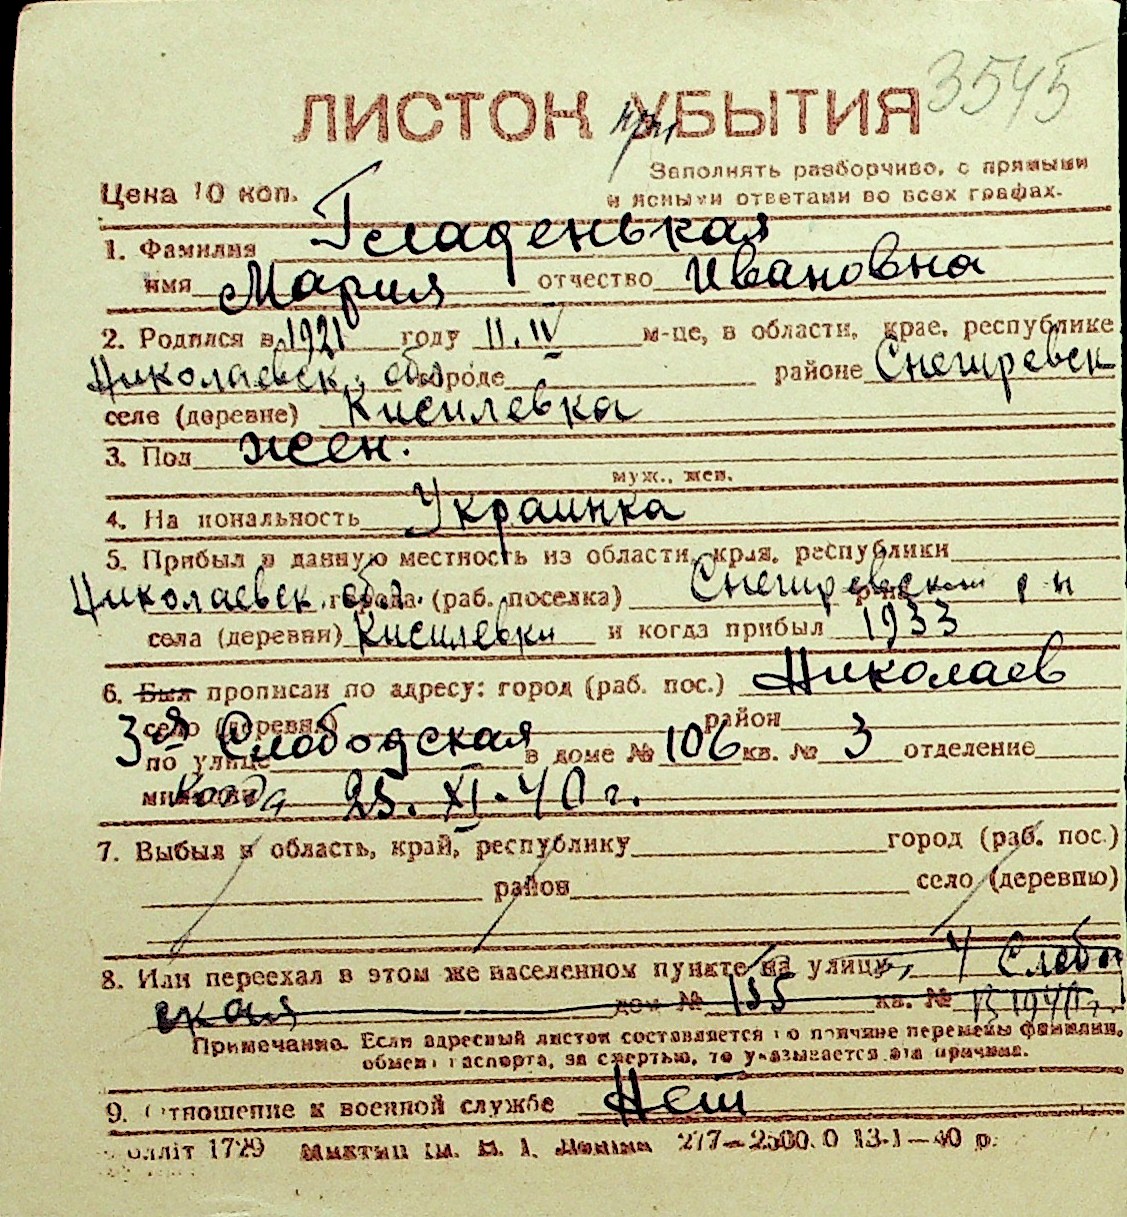 3545
ЛИСТОК при УБЫТИЯ
Заполнять разборчиво, с прямыми
Цена 10 коп. и ясными ответами во всех графах.
1. Фамилия Гладенькая
имя Мария отчество Ивановна
2. Родился в 1921 году 11.IV м-це, в области, крае, республике
Николаевск. обл. городе районе Снегиревск
селе (деревне) Кисилевка
3. Пол жен.
муж., жен.
4. На иональность Украинка
5. Прибыл в данную местность из области, края, республики
Николаевск. обл. города (раб. поселка) Снегиревский р-н
села (деревни) Кисилевки и когда прибыл 1933
6. Был прописан по адресу: город (раб. пос.) Николаев
село (деревня) район
по улице 3я Слободская в доме № 106 кв. № 3 отделение
милиции когда 25.XI-40 г.
7. Выбыл в область, край, республику город (раб. пос.)
район село (деревню)
8. Или переехал в этом же населенном пункте на улицу, 4 Слобо
ская дом № 135 кв. № В 1940 г.
Примечание. Если адресный листок составляется по причине перемены фамилии,
обмена паспорта, за смертью, то указывается эта причина.
9. Отношение к военной службе Нет
олліт 1729 277—2500.0 13-1—40 р.